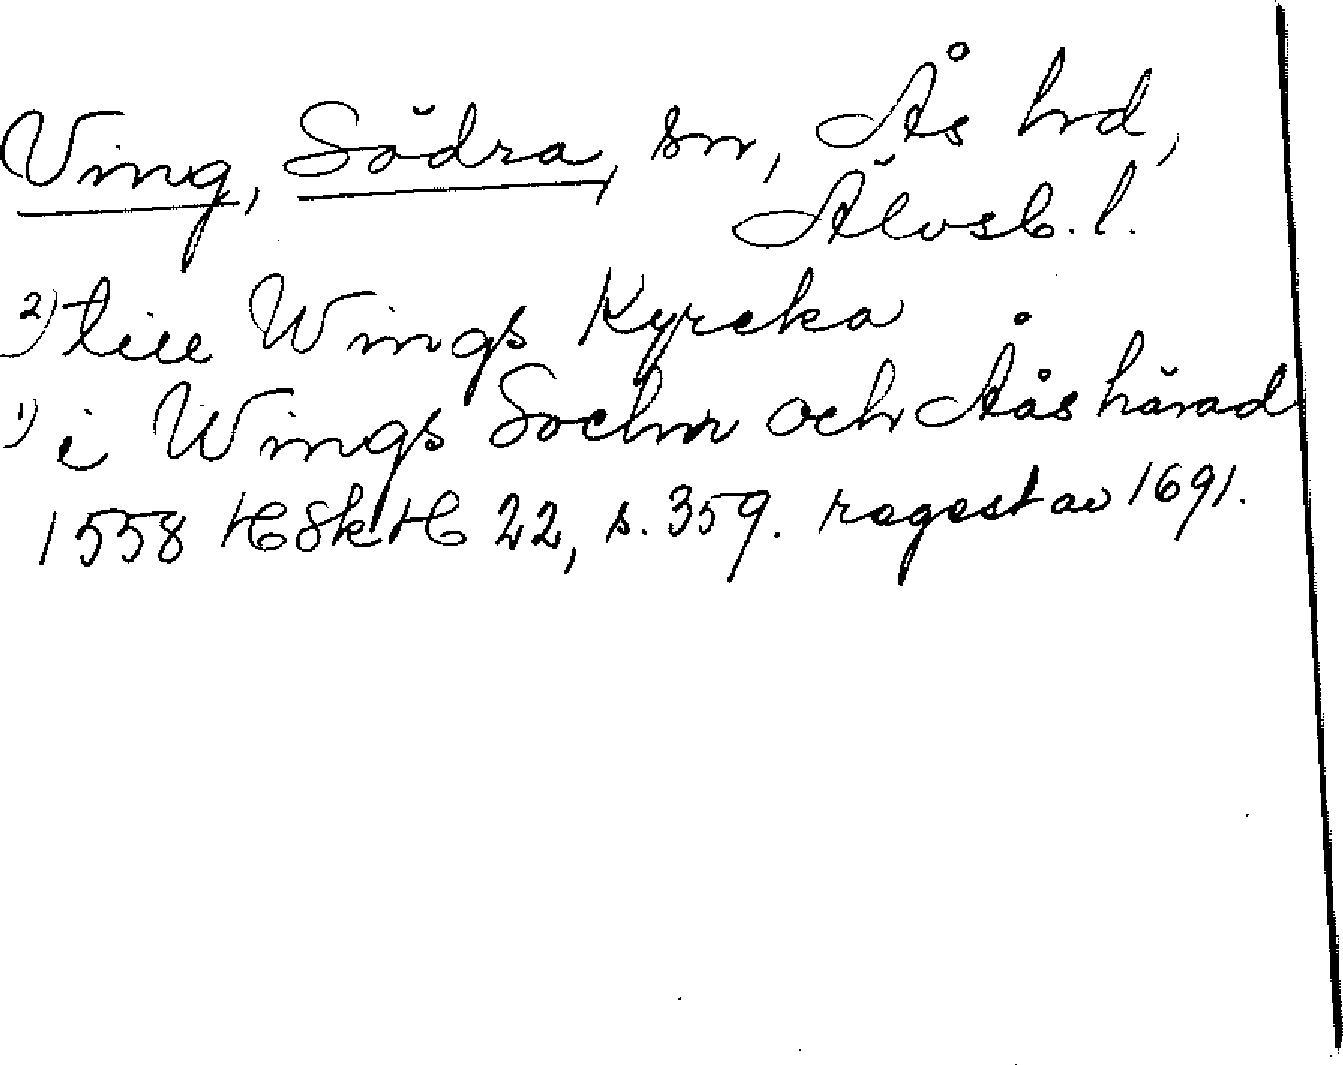 Ving, Södra, sn, Ås hrd,
Älvsb. l.
2) till Wings Kyrcka
1) i Wings Sochn och Åås härad
1558 HSkH 22, s. 359. regest av 1691.